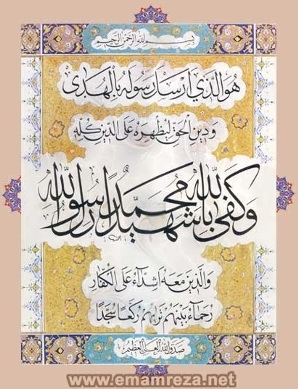 بسم الله الرحمن الرحيم
هو الذي ارسل رسوله بالهدى
ودين الحق ليظهره على الدين كله
وكفى بالله شهيدا محمد رسول الله
والذين معه اشداء على الكفار
رحماء بينهم تريهم ركعا سجدا
صدق الله العلي العظيم
www.emamreza.net